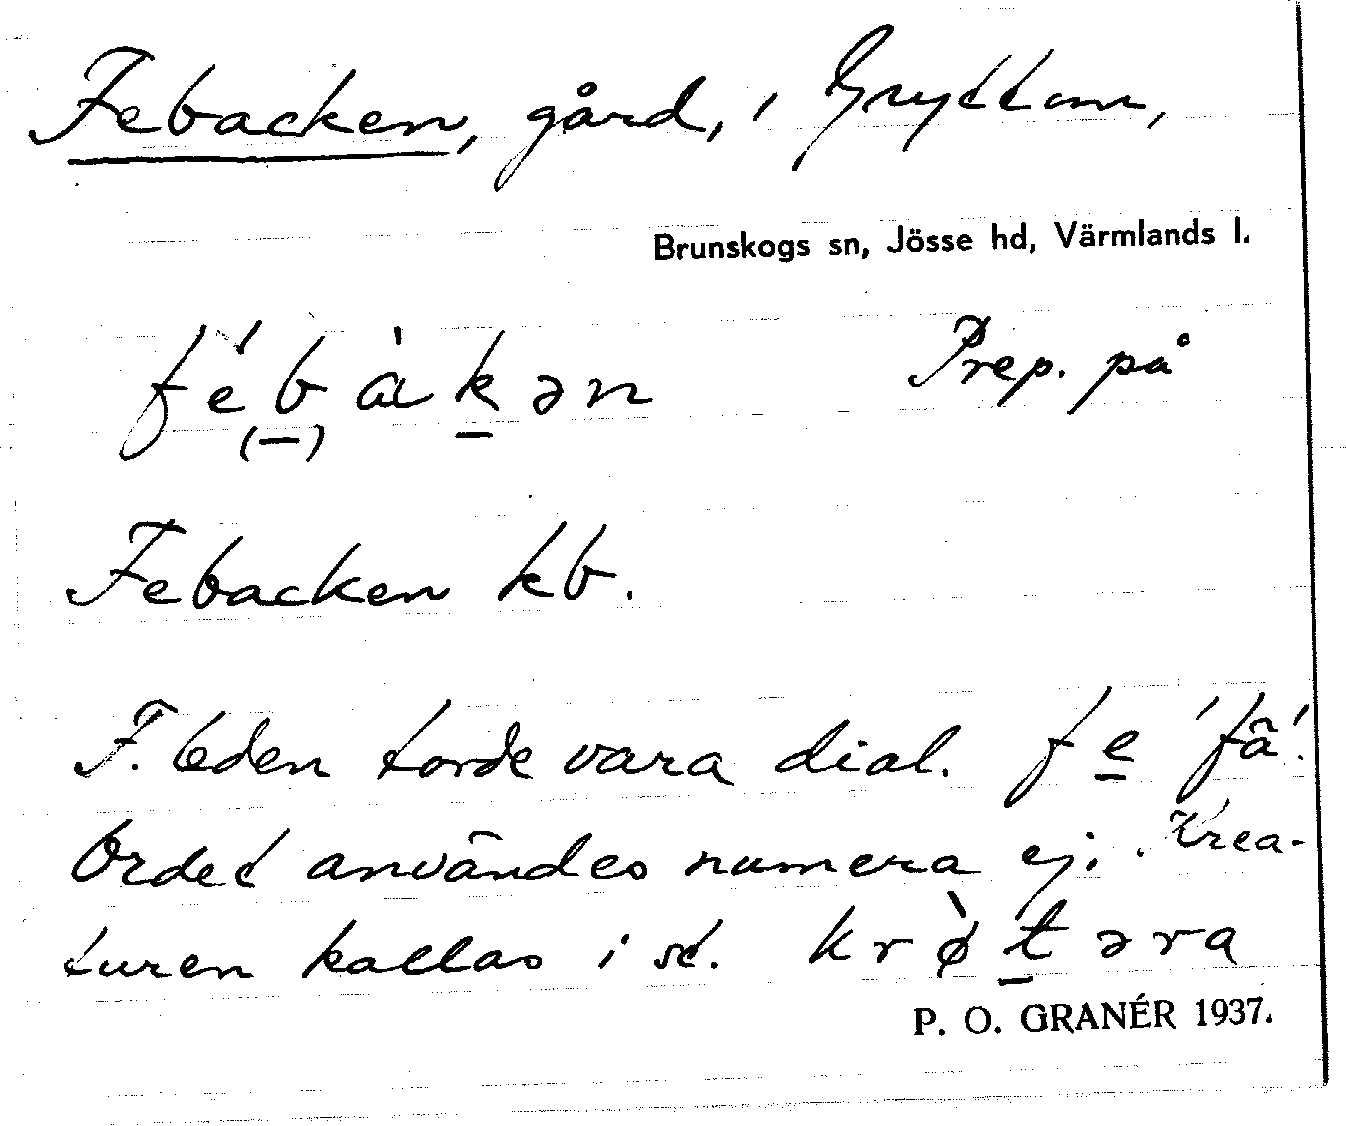 Febacken, gård, i Gryttom,
Brunskogs sn, Jösse hd, Värmlands l.
fébàkən Prep. på
(–)
Febacken kb.
F. leden torde vara dial. fe 'fä'.
Ordet användes numera ej. Krea-
turen kallas i st. krø̀təra
P. O. GRANÉR 1937.